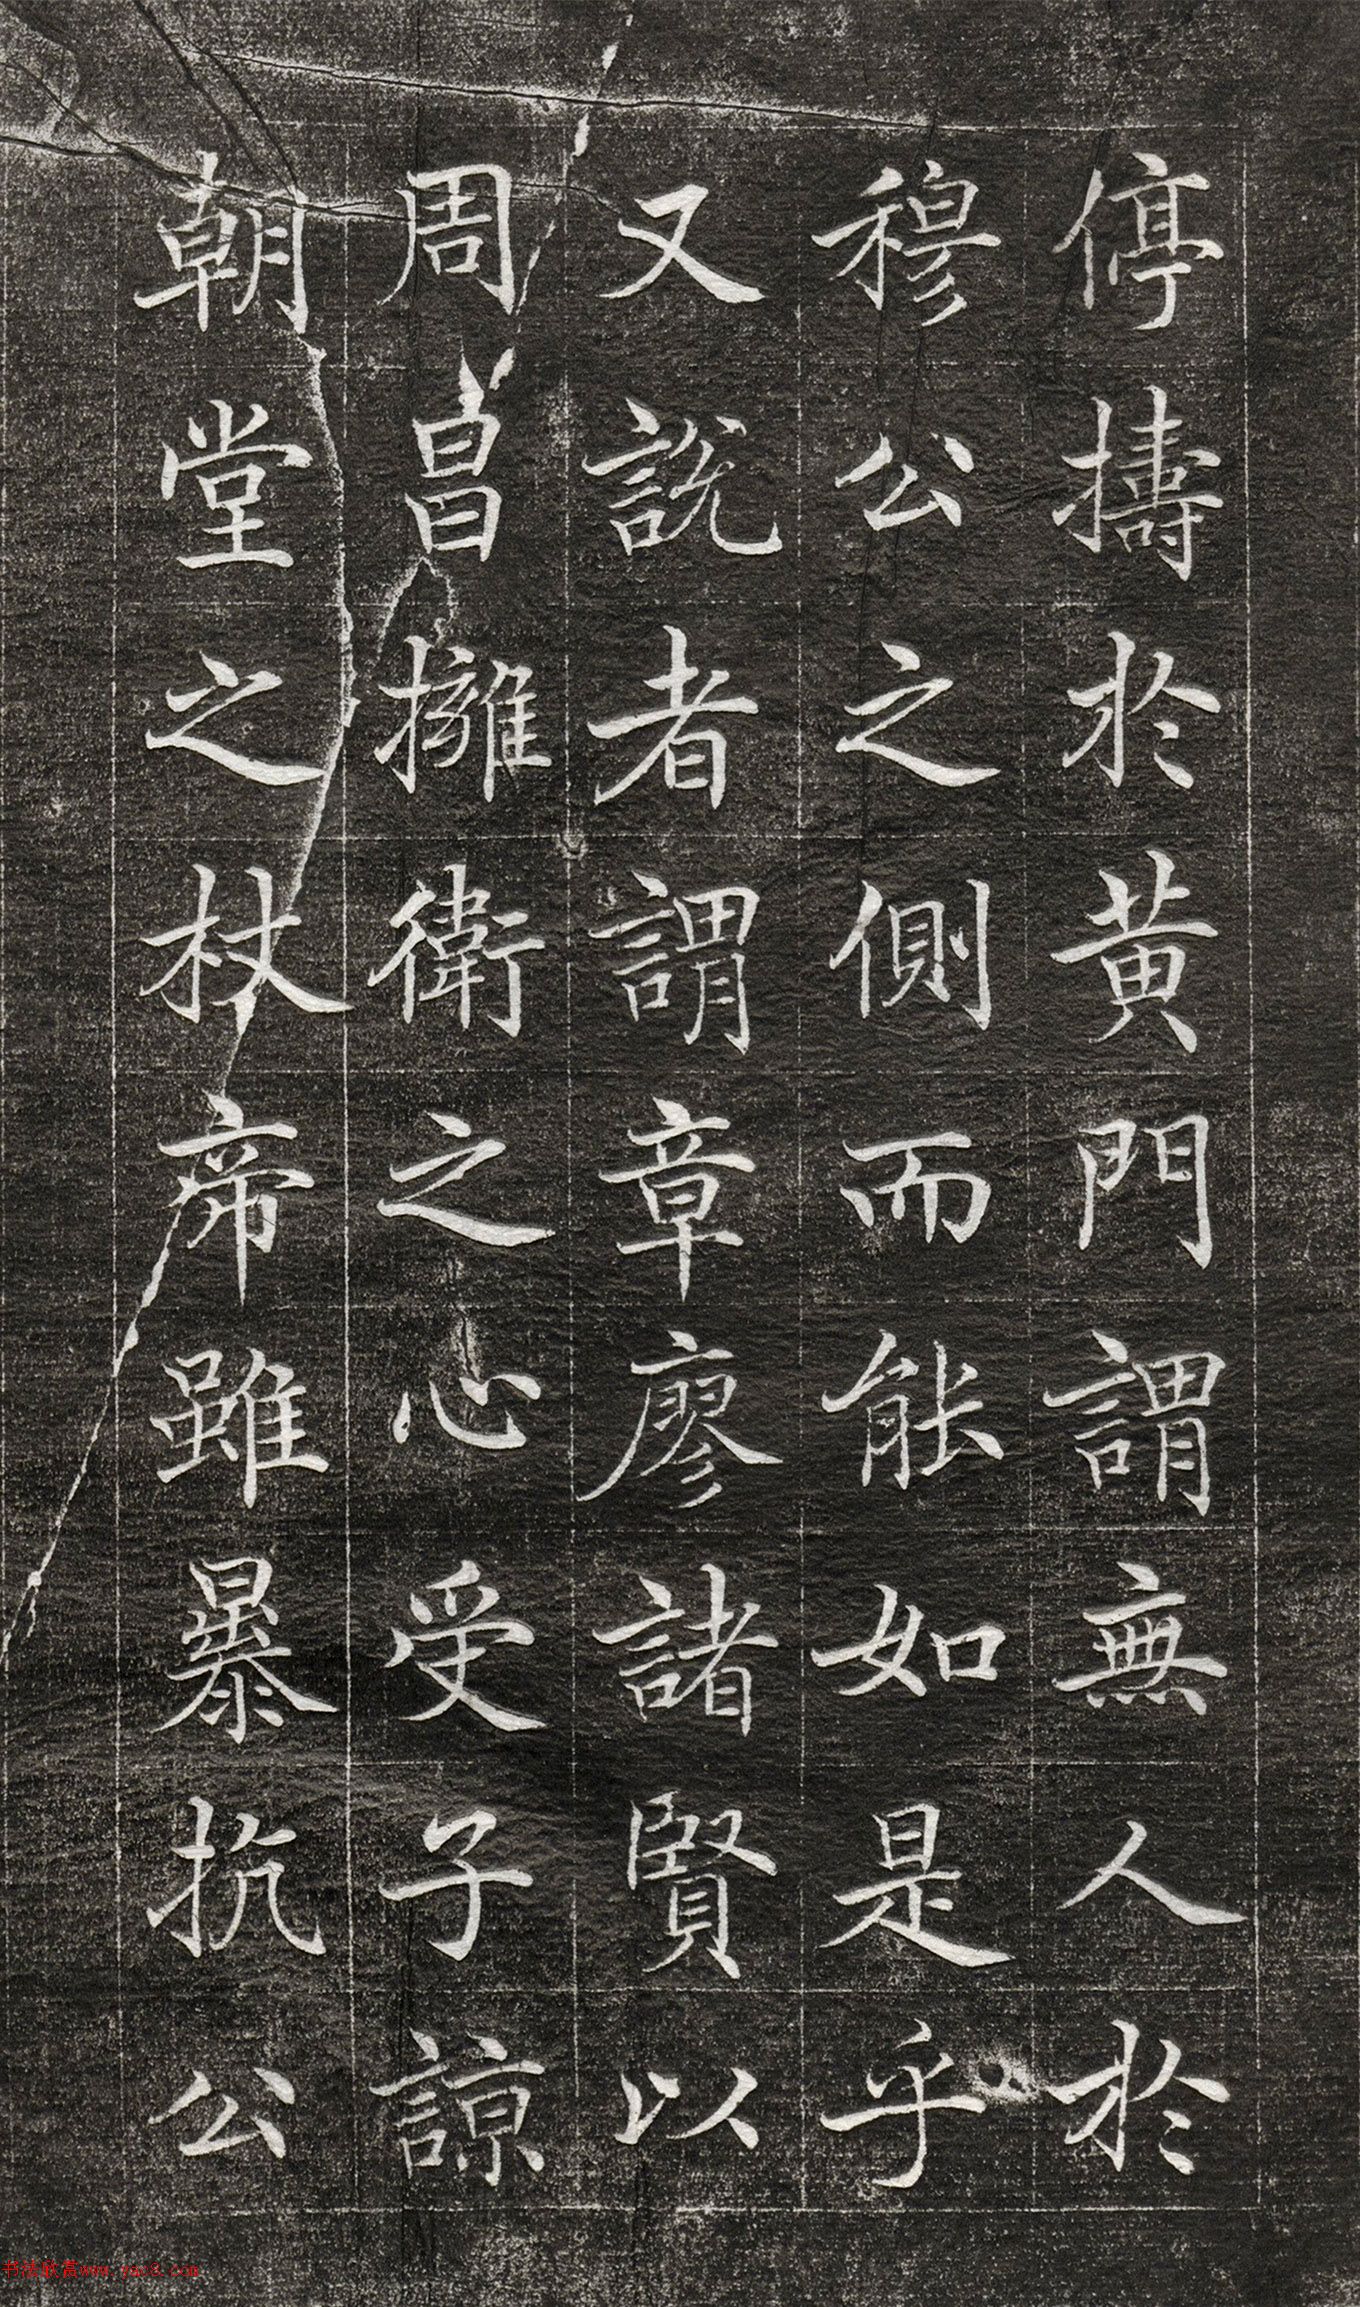 停擣於黃門謂無人於
穆公之側而能如是乎
又說者謂章廖諸賢以
周昌擁衛之心受子諒
朝堂之杖帝雖暴抗公
书法欣赏www.yac8.com